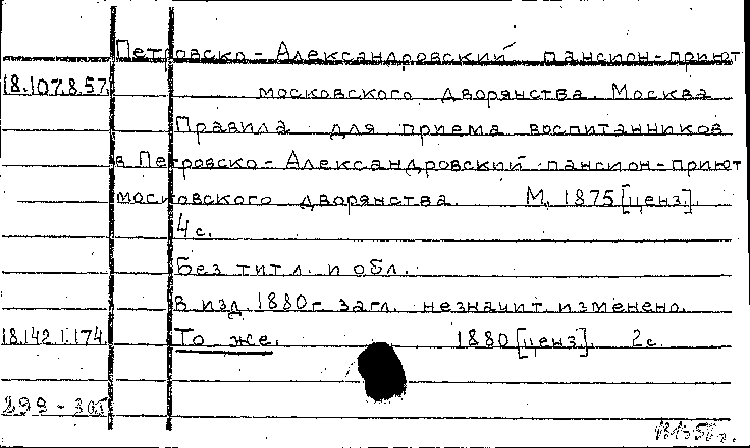 Петровско-Александровский пансион-приют
18.107.8.57 московского дворянства. Москва
Правила для приема воспитанников
в Петровско-Александровский пансион-приют
московского дворянства. М. 1875 [ценз].
4 с.
Без тит л. и обл.
В изд. 1880 г загл. незначит изменено.
18.142.1.174 То же. 1880 [ценз]. 2 с.